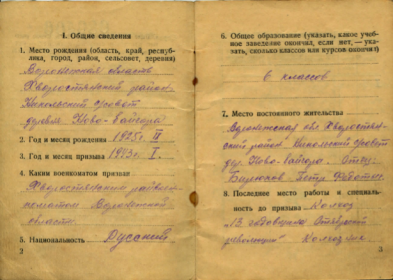 1. Общие сведения
1. Место рождения (область, край, респуб-
лика, город, район, сельсовет, деревня)
Воронежская область
Хворостянский район
Никольский с/совет
деревня Ново-Байгора
2. Год и месяц рождения 1925г. IX
3. Год и месяц призыва 1943г. I.
4. Каким военкоматом призван
Хворостянским райвоен-
коматом Воронежской
области.
5. Национальность Русский
3
6. Общее образование (указать, какое учеб-
ное заведение окончил, если нет, — ука-
зать, сколько классов или курсов окончил)
6 классов
7. Место постоянного жительства
Воронежская обл Хворостян-
ский район Никольский с/совет
дер. Ново-Байгора. Отец:
Петр
8. Последнее место работы и специаль-
ность до призыва Колхоз
"13 годовщина Октябрской
революции" Колхозник.
3